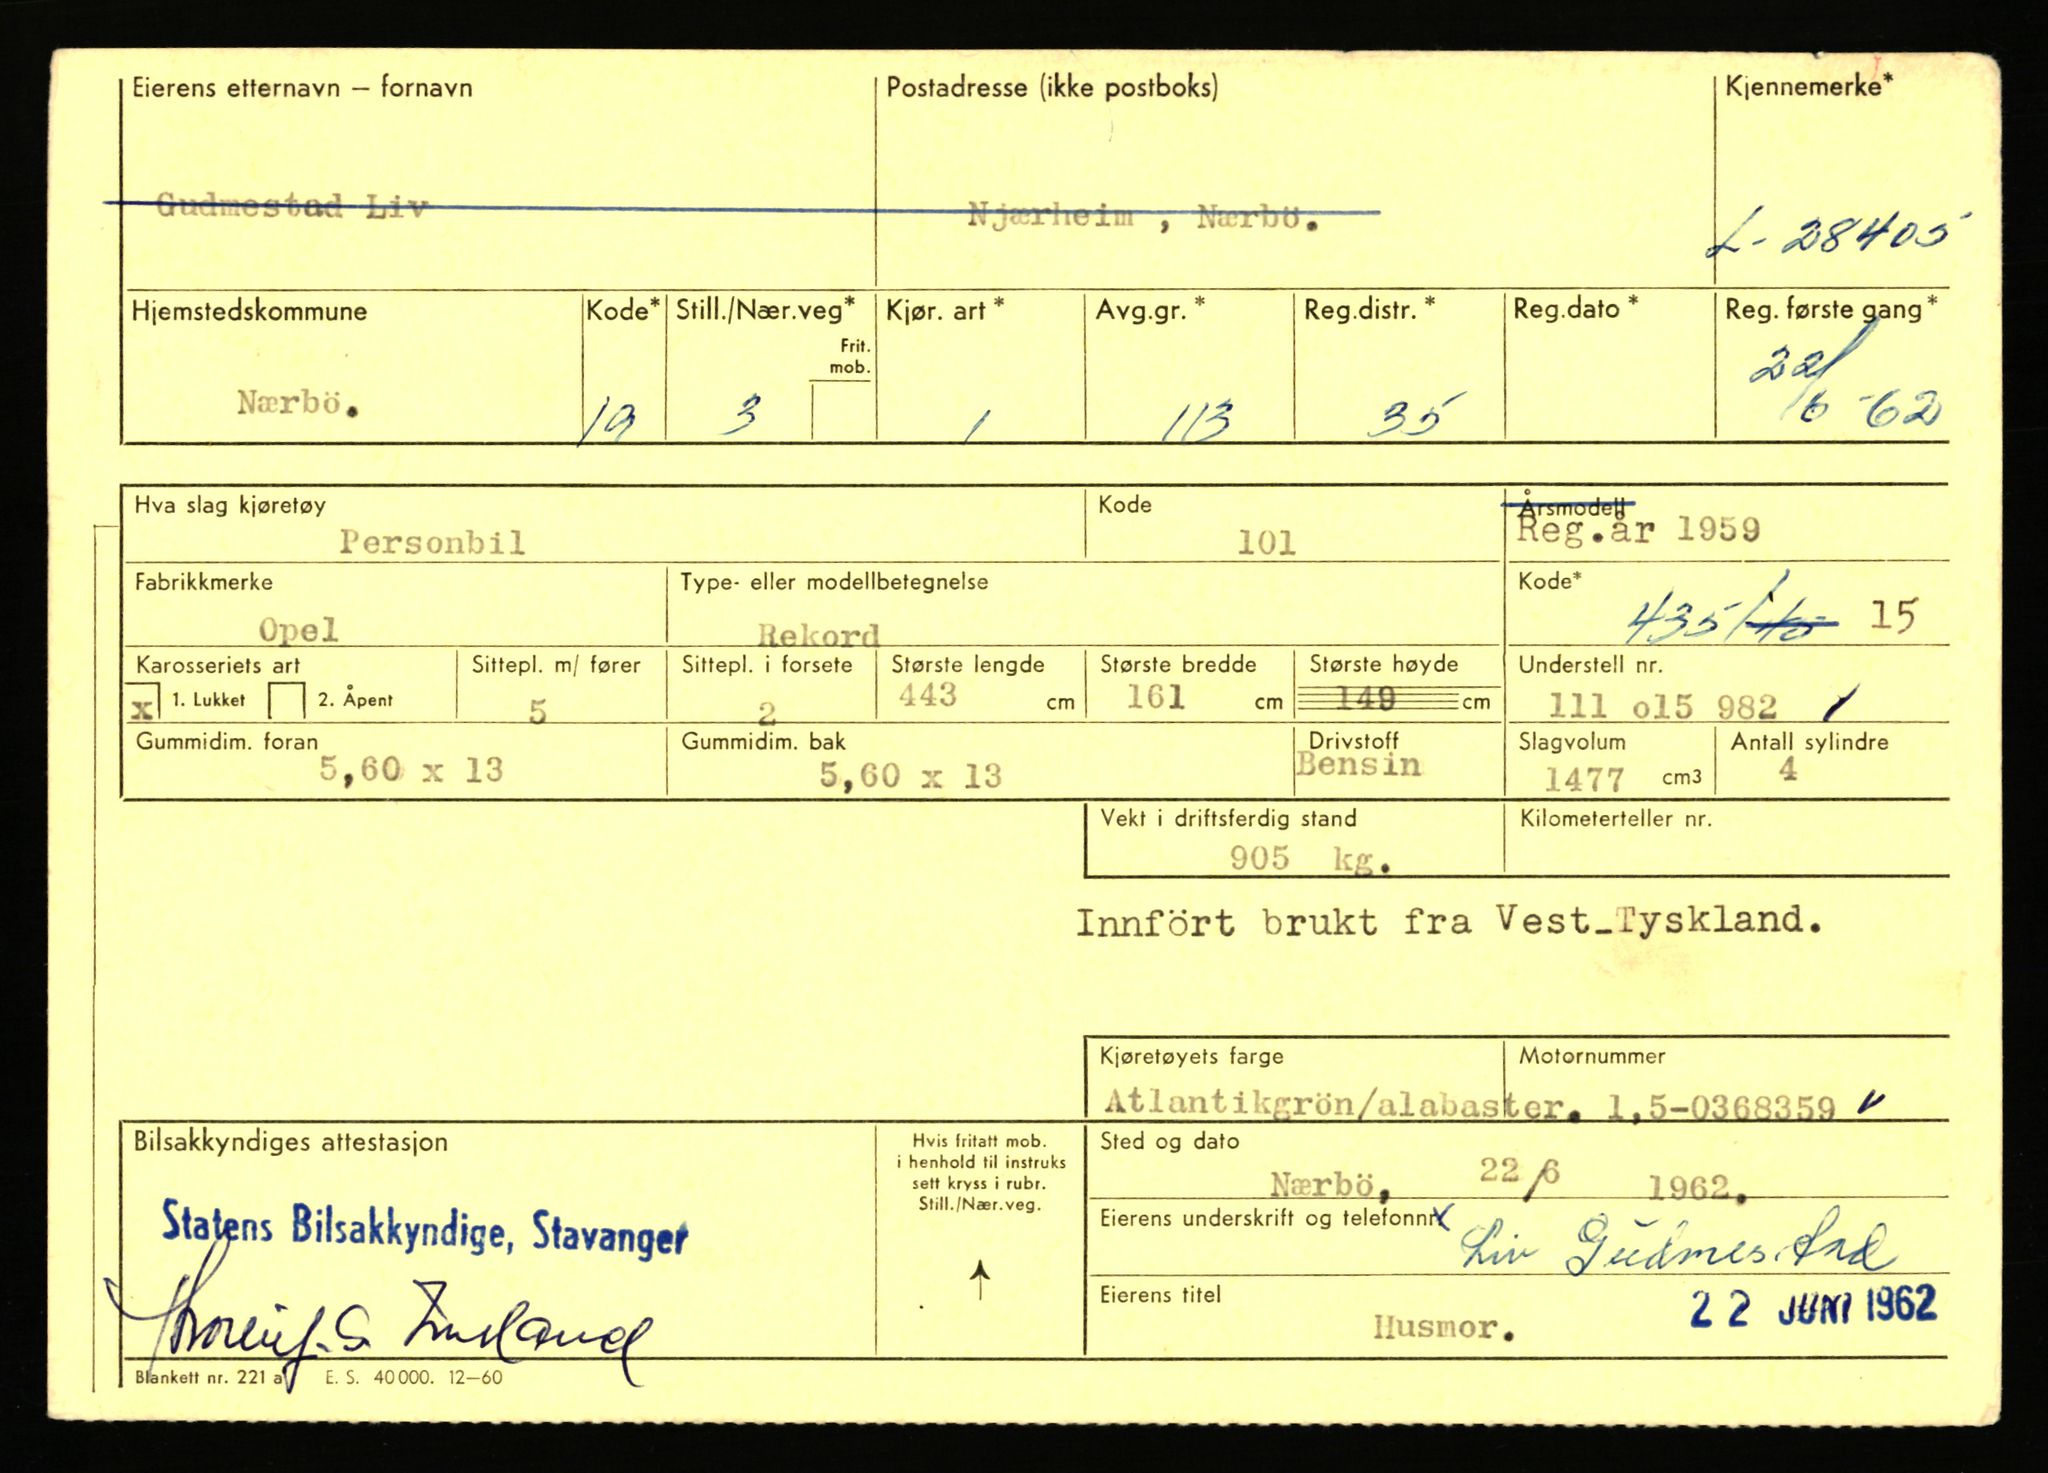 Eierens etternavn – fornavn
Postadresse (ikke postboks)
Kjennemerke*
Gudmestad Liv
Njærheim , Nærbö.
L- 28405
Hjemstedskommune
Kode*
Still./Nær.veg*
Frit.
mob.
Kjør. art *
Avg.gr. *
Reg.distr. *
Reg.dato *
Reg. første gang*
Nærbö.
19
3
1
113
35
22/
6-62
Hva slag kjøretøy
Personbil
Kode
101
Årsmodell
Reg.år 1959
Fabrikkmerke
Opel
Type- eller modellbetegnelse
Rekord
Kode*
435/ 15
Karosseriets art
x 1. Lukket 2. Åpent
Sittepl. m/ fører
5
Sittepl. i forsete
2
Største lengde
443 cm
Største bredde
161 cm
Største høyde
149 cm
Understell nr.
111 o15 982
Gummidim. foran
5,60 x 13
Gummidim. bak
5,60 x 13
Drivstoff
Bensin
Slagvolum
1477 cm3
Antall sylindre
4
Vekt i driftsferdig stand
905 kg.
Kilometerteller nr.
Innfört brukt fra Vest-Tyskland.
Kjøretøyets farge
Motornummer
Atlantikgrön/alabaster. 1,5-0368359
Bilsakkyndiges attestasjon
Statens Bilsakkyndige, Stavanger
Hvis fritatt mob.
i henhold til instruks
sett kryss i rubr.
Still./Nær.veg.
Sted og dato
Nærbö, 22/6 1962.
Eierens underskrift og telefonnr.
Liv Gudmestad
Eierens titel
Husmor.
22 JUNI 1962
Blankett nr. 221 a E. S. 40 000. 12–60